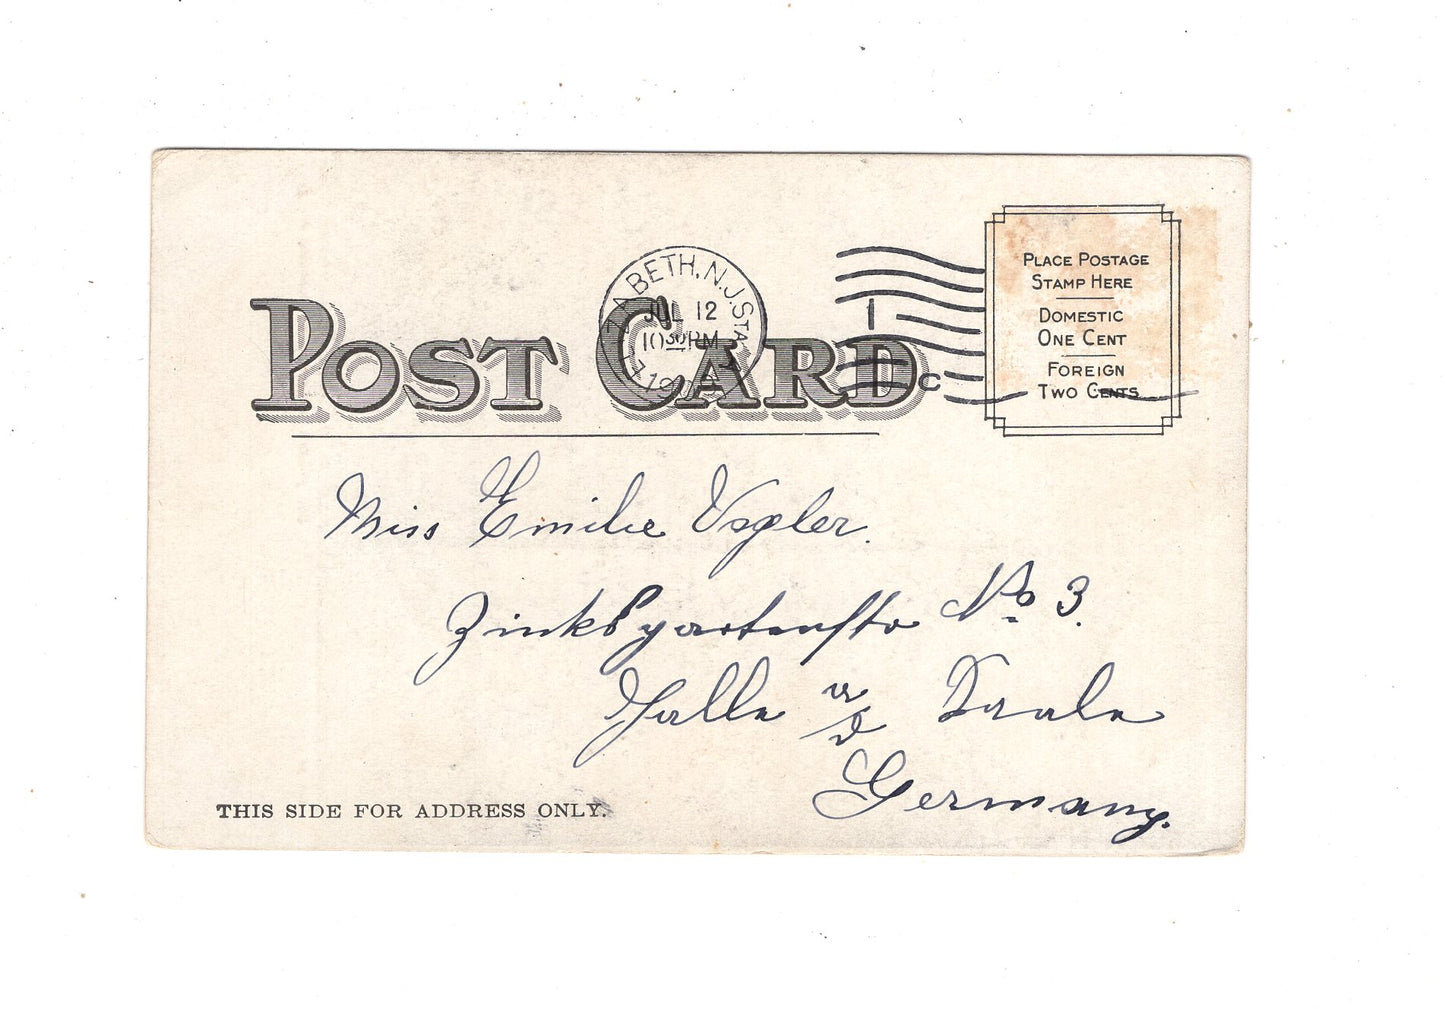 POST CARD
ELIZABETH, N.J. STA
JUL 12
10 30 PM
1
C
PLACE POSTAGE
STAMP HERE
DOMESTIC
ONE CENT
FOREIGN
TWO CENTS
Miss Emilie
No 3.
Halle a/d Saale
Germany.
THIS SIDE FOR ADDRESS ONLY.